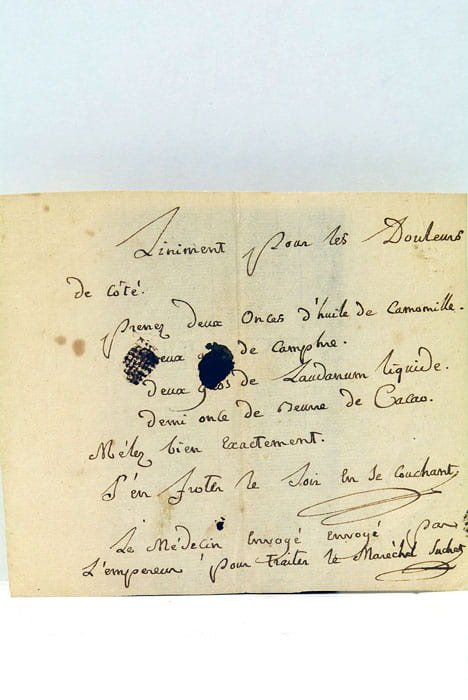 Liniment pour les Douleurs
de côté.
Prenez deux Onces d'huile de Camomille.
deux de Camphre.
deux gros de Laudanum liquide.
demi once de Beurre de Cacao.
Mêlez bien Exactement.
S'en froter le Soir En Se Couchant
Le Médecin Envoyé Envoyé par
L'empereur pour traiter le Maréchal Suchet